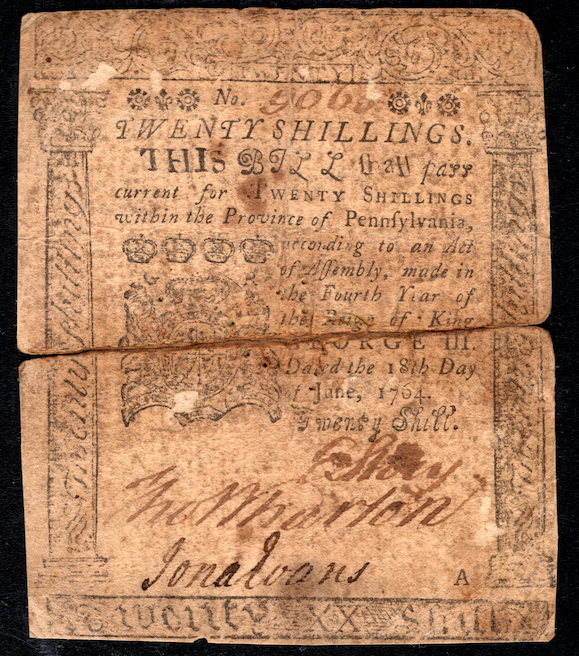 TWENTY
No. 9060
TWENTY SHILLINGS.
THIS BILL ſhall paſs
current for TWENTY SHILLINGS
within the Province of Pennſylvania,
according to an Act
of Aſſembly, made in
the Fourth Year of
the Reign of King
GEORGE III.
Dated the 18th Day
of June, 1764.
Twenty Shill.
E Story
Tho Wharton
Jona Evans
A
Twenty XX Shills
Twenty Shillings